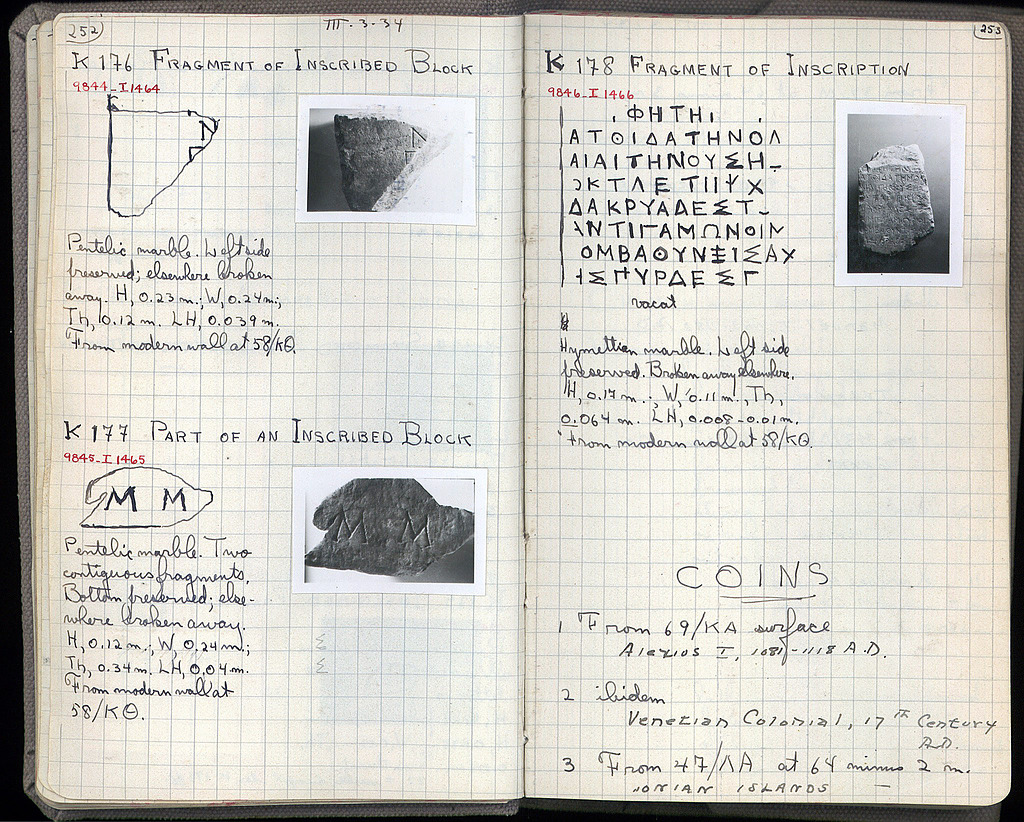 252
III-3-34
K 176 FRAGMENT OF INSCRIBED BLOCK
9844-I 1464
N
Γ
Pentelic marble. Left side
preserved; elsewhere broken
away. H, 0.23 m.; W, 0.24 m.;
Th, 0.12 m. LH, 0.039 m.
From modern wall at 58/ΚΘ.
K 177 PART OF AN INSCRIBED BLOCK
9845-I 1465
M M
Pentelic marble. Two
contiguous fragments.
Bottom preserved; else-
where broken away.
H, 0.12 m.; W, 0.24 m.;
Th, 0.34 m. LH, 0.04 m.
From modern wall at
58/ΚΘ.
Σ
Σ
253
K 178 FRAGMENT OF INSCRIPTION
9846-I 1466
ΦΗΤΗ
ΑΤΟΙΔΑΤΗΝΟΛ
ΑΙΑΙΤΗΝΟΥΣΗ
ΚΤΛΕΤΙΙΨΧ
ΔΑΚΡΥΑΔΕΣΤ
ΝΤΙΓΑΜΩΝΟΙΝ
ΟΜΒΑΘΥΝΞΙΣΑΧ
ΙΣΠΥΡΔΕΣΓ
vacat
Hymettian marble. Left side
preserved. Broken away elsewhere.
H, 0.17 m.; W, 0.11 m., Th,
0.064 m. LH, 0.008-0.01 m.
From modern wall at 58/ΚΘ.
COINS
1 From 69/ΚΑ surface
Alexios I, 1081-1118 A.D.
2 ibidem
Venetian Colonial, 17th Century
A.D.
3 From 47/ΛΑ at 64 minus 2 m.
IONIAN ISLANDS